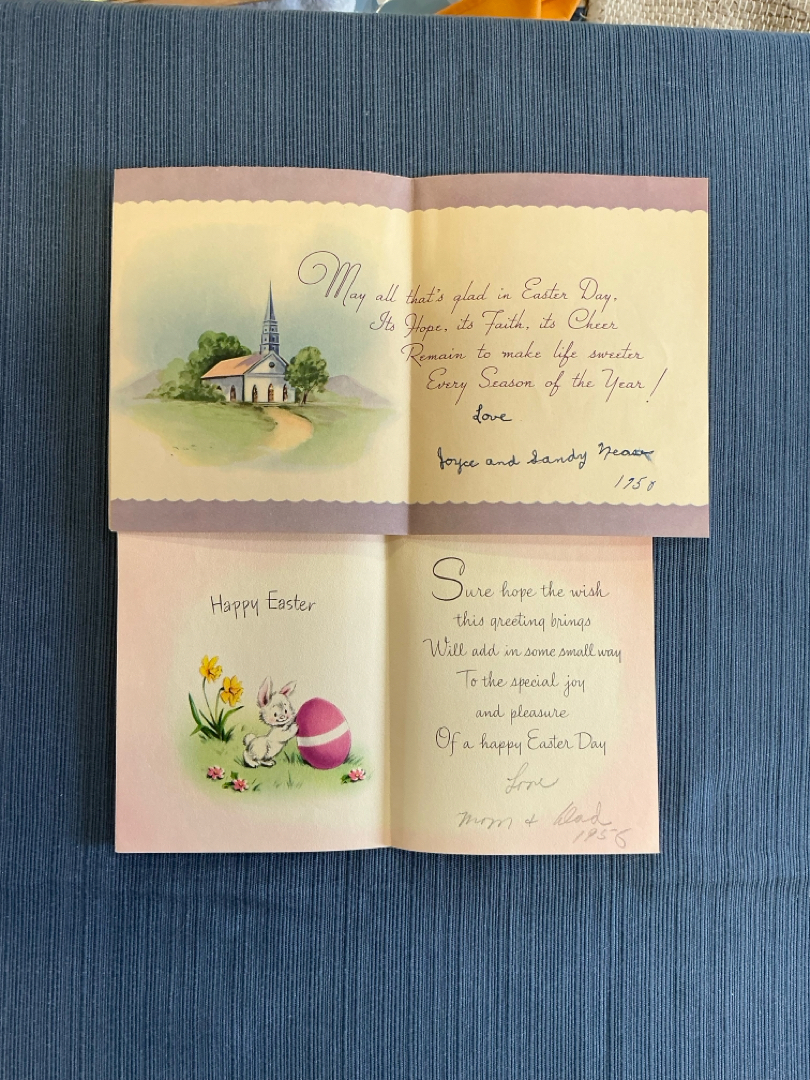 May all that's glad in Easter Day,
Its Hope, its Faith, its Cheer
Remain to make life sweeter
Every Season of the Year!
Love
Joyce and Sandy
Happy Easter
Sure hope the wish
this greeting brings
Will add in some small way
To the special joy
and pleasure
Of a happy Easter Day
Love
Mom & Dad